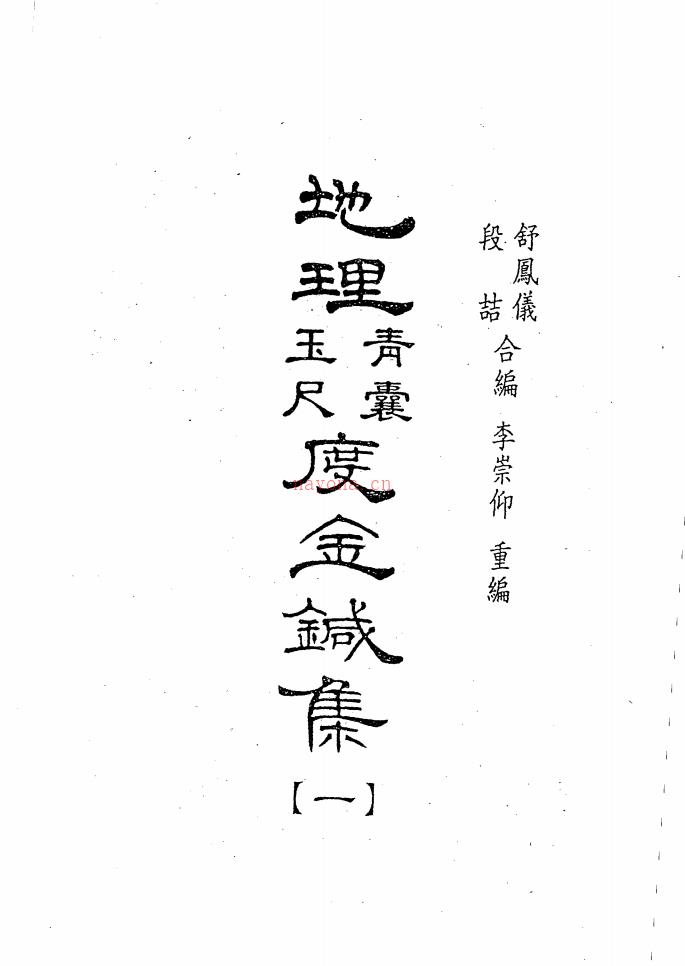 舒鳳儀
段喆
合編 李崇仰 重編
地理
青囊
玉尺
度金鍼集
【一】
nayona.cn